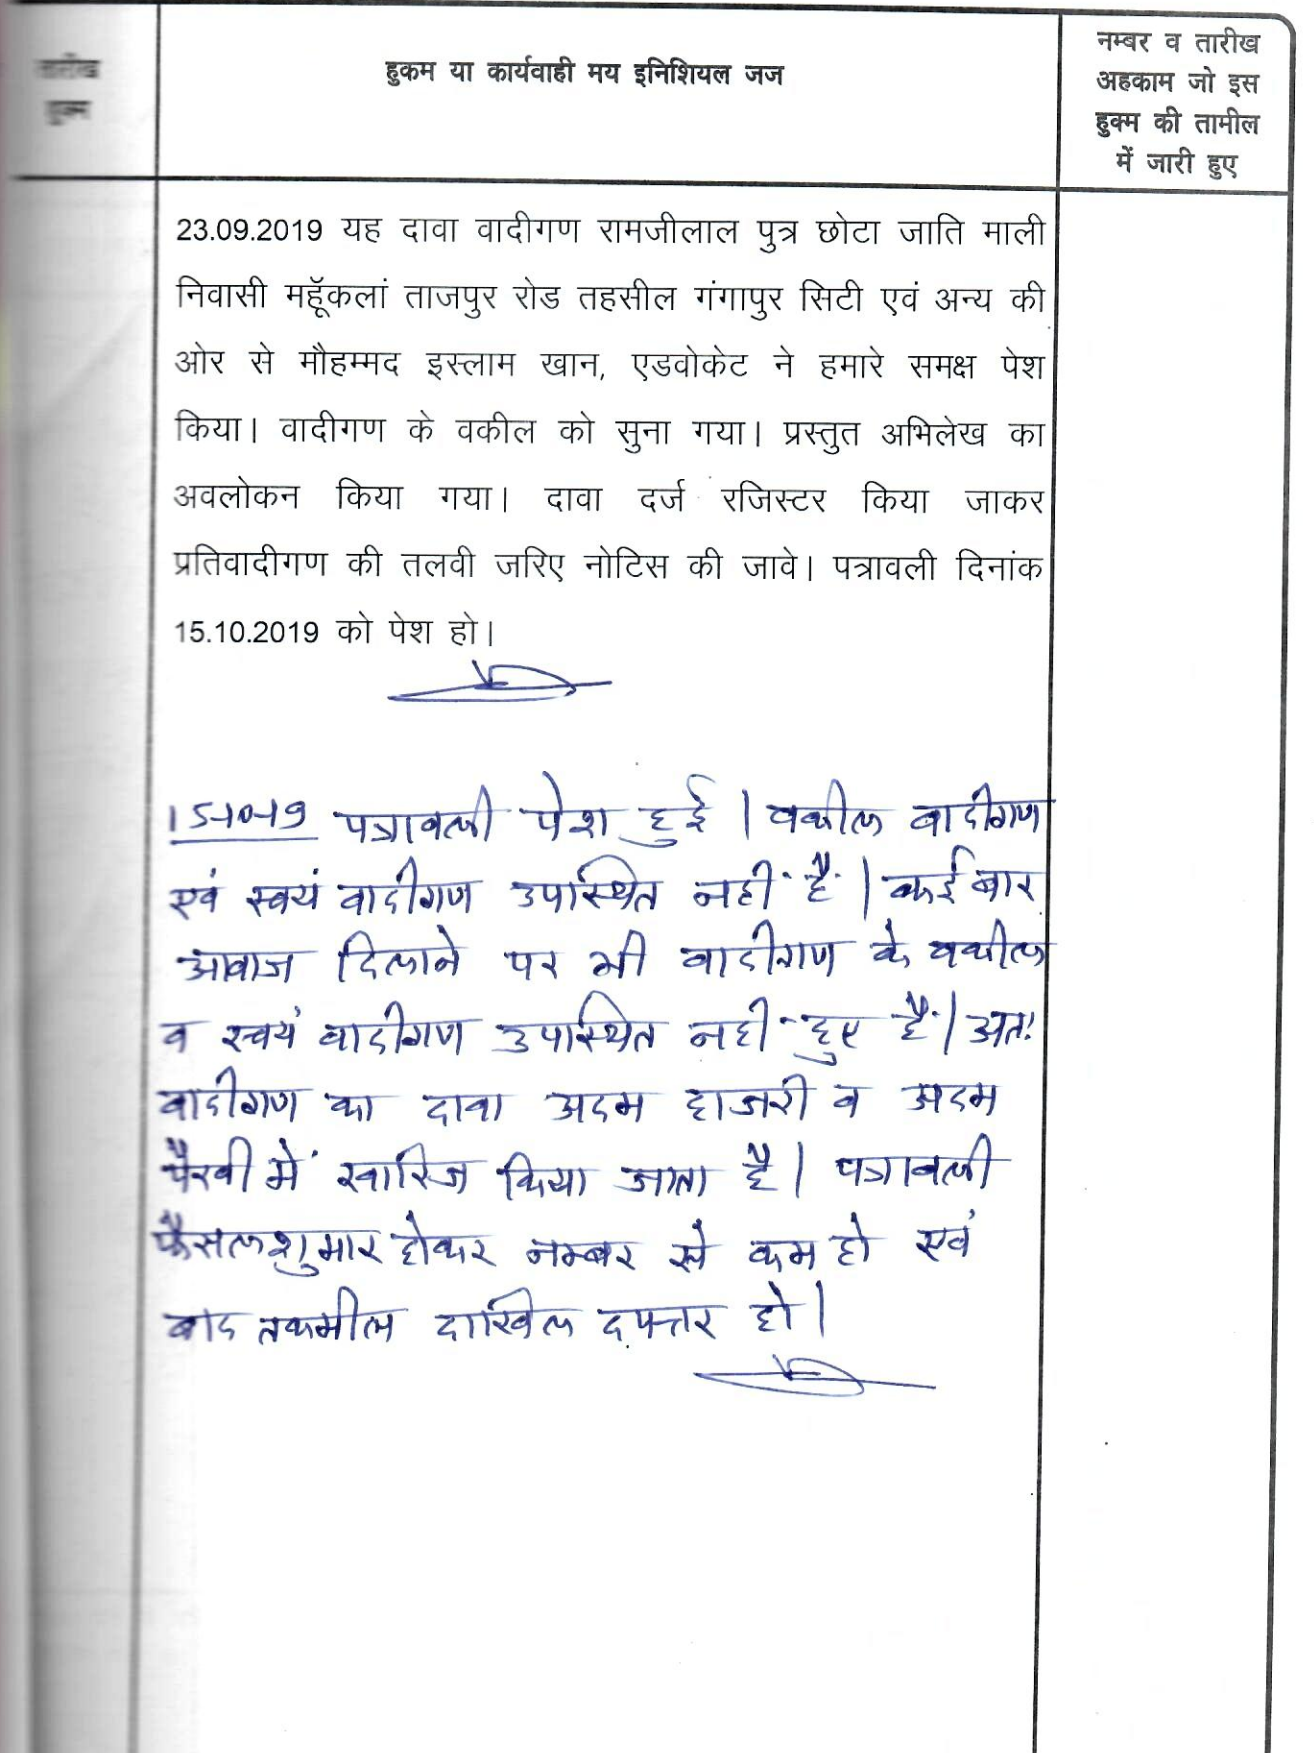 तारीख
हुक्म
हुकम या कार्यवाही मय इनिशियल जज
नम्बर व तारीख
अहकाम जो इस
हुक्म की तामील
में जारी हुए
23.09.2019 यह दावा वादीगण रामजीलाल पुत्र छोटा जाति माली
निवासी महूँकलां ताजपुर रोड तहसील गंगापुर सिटी एवं अन्य की
ओर से मौहम्मद इस्लाम खान, एडवोकेट ने हमारे समक्ष पेश
किया। वादीगण के वकील को सुना गया। प्रस्तुत अभिलेख का
अवलोकन किया गया। दावा दर्ज रजिस्टर किया जाकर
प्रतिवादीगण की तलवी जरिए नोटिस की जावे। पत्रावली दिनांक
15.10.2019 को पेश हो।
15-10-19 पत्रावली पेश हुई। वकील वादीगण
एवं स्वयं वादीगण उपस्थित नहीं है। कई बार
आवाज दिलाने पर भी वादीगण के वकील
व स्वयं वादीगण उपस्थित नहीं हुए है। अतः
वादीगण का दावा अदम हाजरी व अदम
पैरवी में खारिज किया जाता है। पत्रावली
फैसलशुमार होकर नम्बर से कम हो एवं
बाद तकमील दाखिल दफ्तर हो।